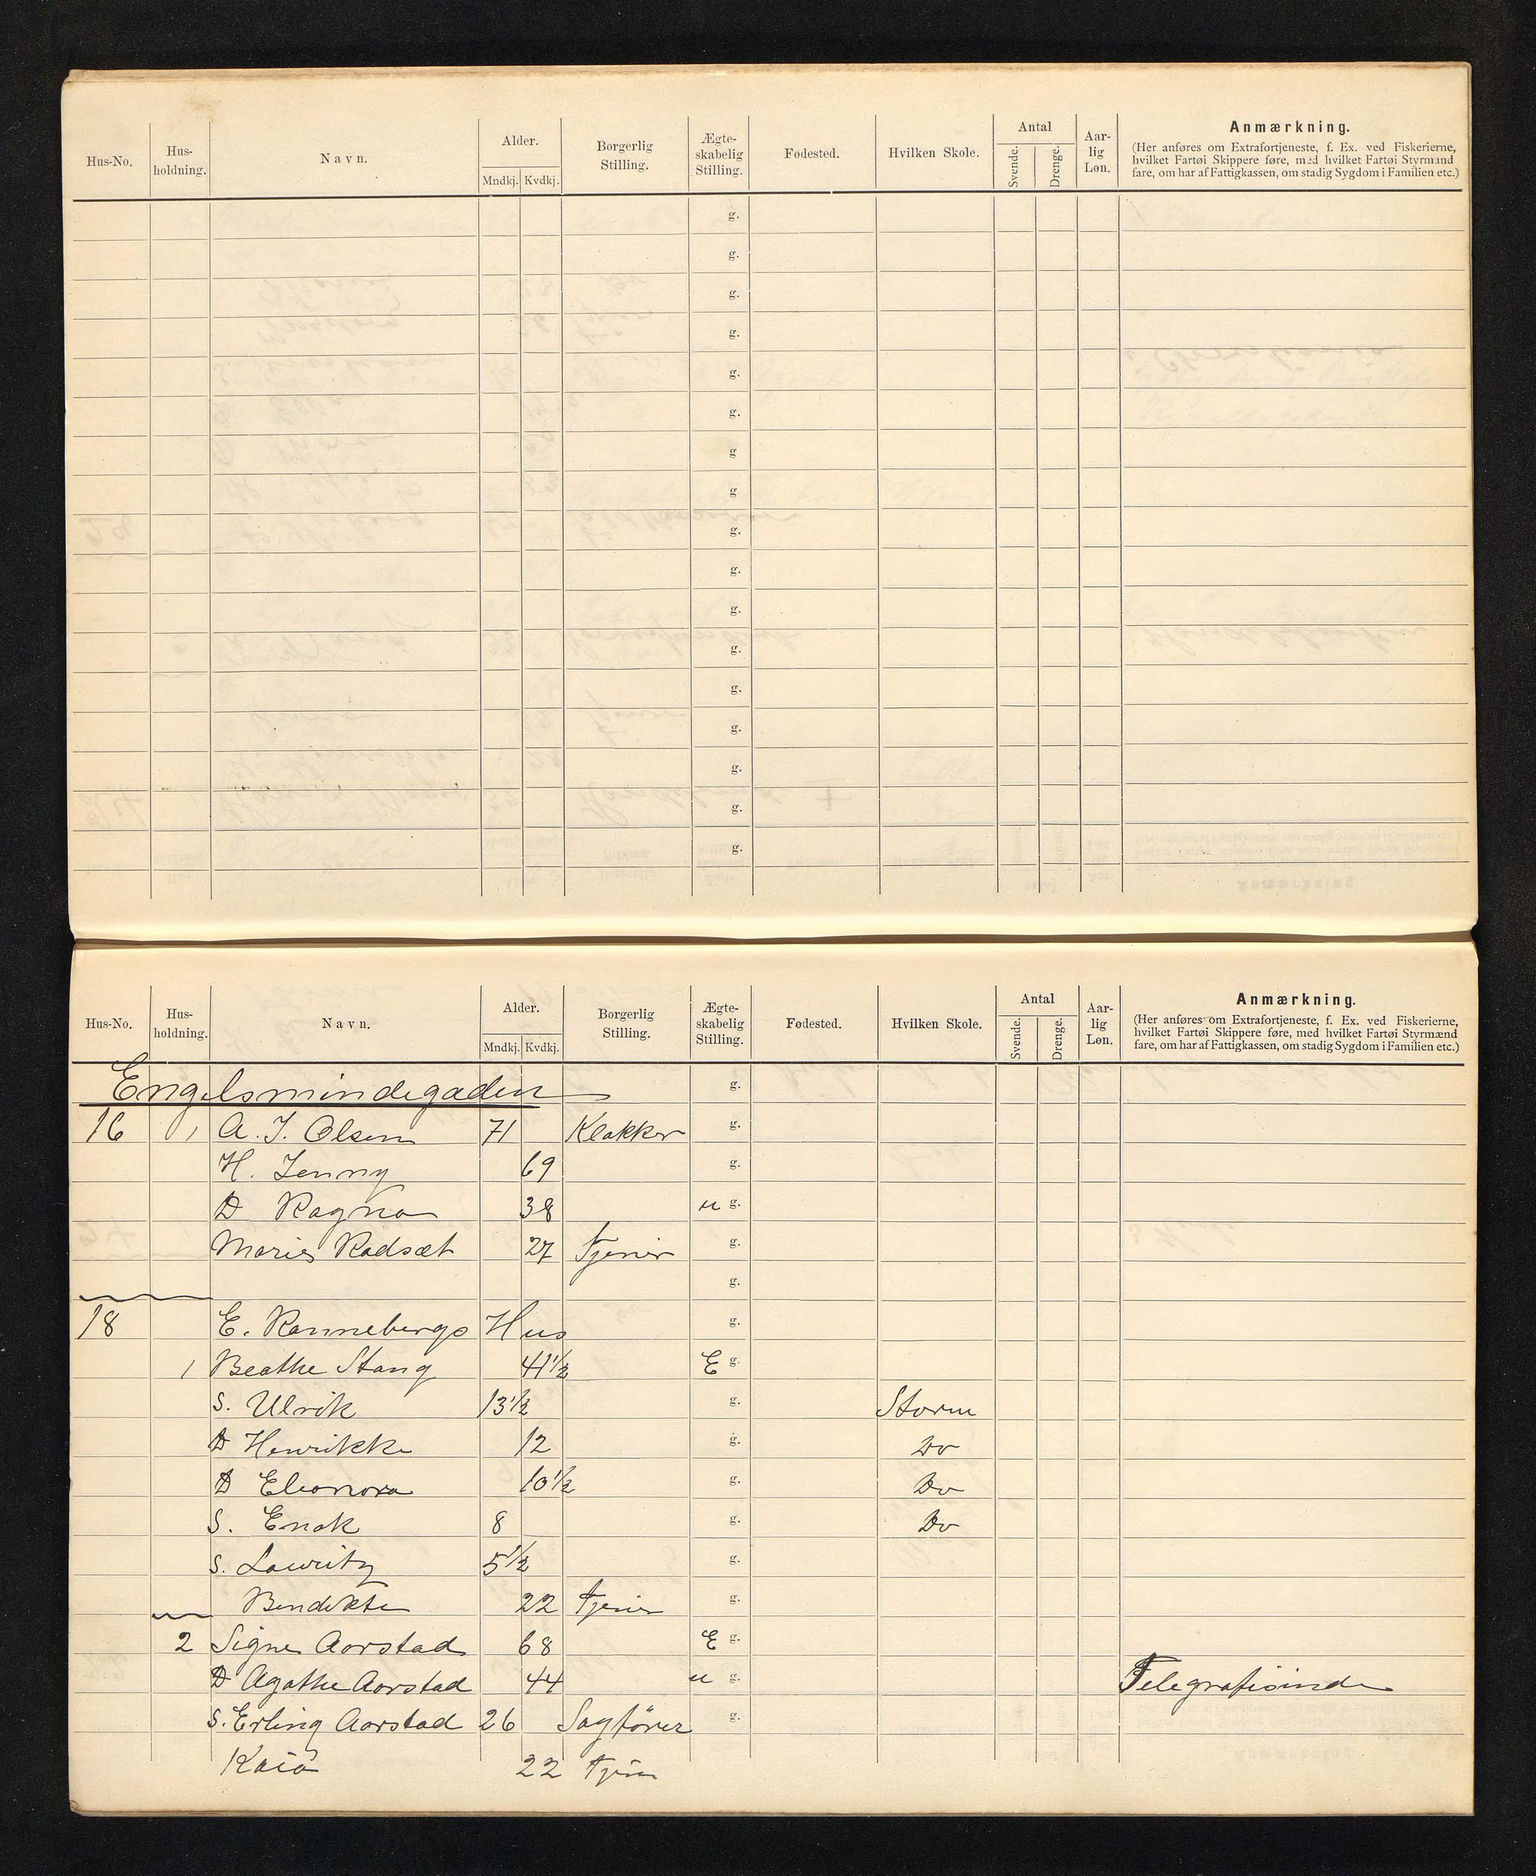 Hus-No. Hus-holdning. Navn. Alder. Mndkj. Kvdkj. Borgerlig Stilling. Ægte-skabelig Stilling. Fødested. Hvilken Skole. Antal Svende. Drenge. Aar-lig Løn. Anmærkning.
(Her anføres om Extrafortjeneste, f. Ex. ved Fiskerierne,
hvilket Fartøi Skippere føre, med hvilket Fartøi Styrmænd
fare, om har af Fattigkassen, om stadig Sygdom i Familien etc.)
g.
g.
g.
g.
g.
g.
g.
g.
g.
g.
g.
g.
g.
g.
g.
g.
g.
Hus-No. Hus-holdning. Navn. Alder. Mndkj. Kvdkj. Borgerlig Stilling. Ægte-skabelig Stilling. Fødested. Hvilken Skole. Antal Svende. Drenge. Aar-lig Løn. Anmærkning.
(Her anføres om Extrafortjeneste, f. Ex. ved Fiskerierne,
hvilket Fartøi Skippere føre, med hvilket Fartøi Styrmænd
fare, om har af Fattigkassen, om stadig Sygdom i Familien etc.)
Engelsmindegaden g.
16 1 A. J. Olsen 71 Klokker g.
H. Jenny 69 g.
D Ragna 38 u g.
Marie Rodsæt 27 Tjener g.
g.
18 E. Rønnebergs Hus g.
1 Beathe Stang 41½ E g.
S. Ulrik 13½ g. Storm
D Henrikke 12 g. Do
D Eleonora 10½ g. Do
S. Enok 8 g. Do
S. Lauritz 5½ g.
Bendikte 22 Tjener g.
2 Signe Aarstad 68 E g.
D Agathe Aarstad 44 u g. Telegrafistinde
S. Erling Aarstad 26 Sagfører g.
Kaia 22 Tjen